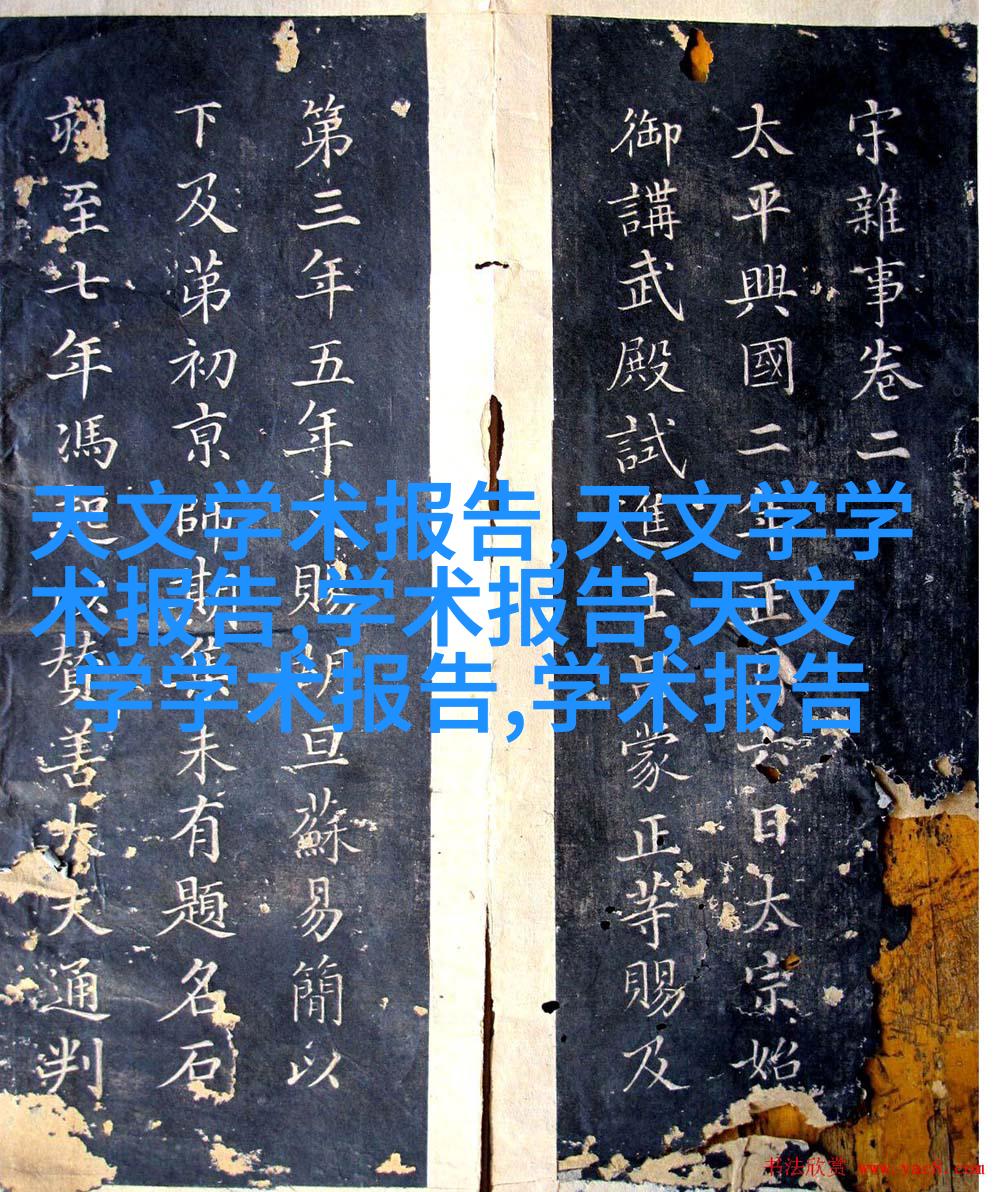 宋雜事卷二
太平興國二年正月六日太宗始
御講武殿試進士呂蒙正等賜及
第三年五年賜胡旦蘇易簡以
下及第初京師期集未有題名石
刻至七年馮起贊善大夫通判
天文学术报告,天文学学
术报告,学术报告,天文
学学术报告,学术报告
书法欣赏 www.yac8.com